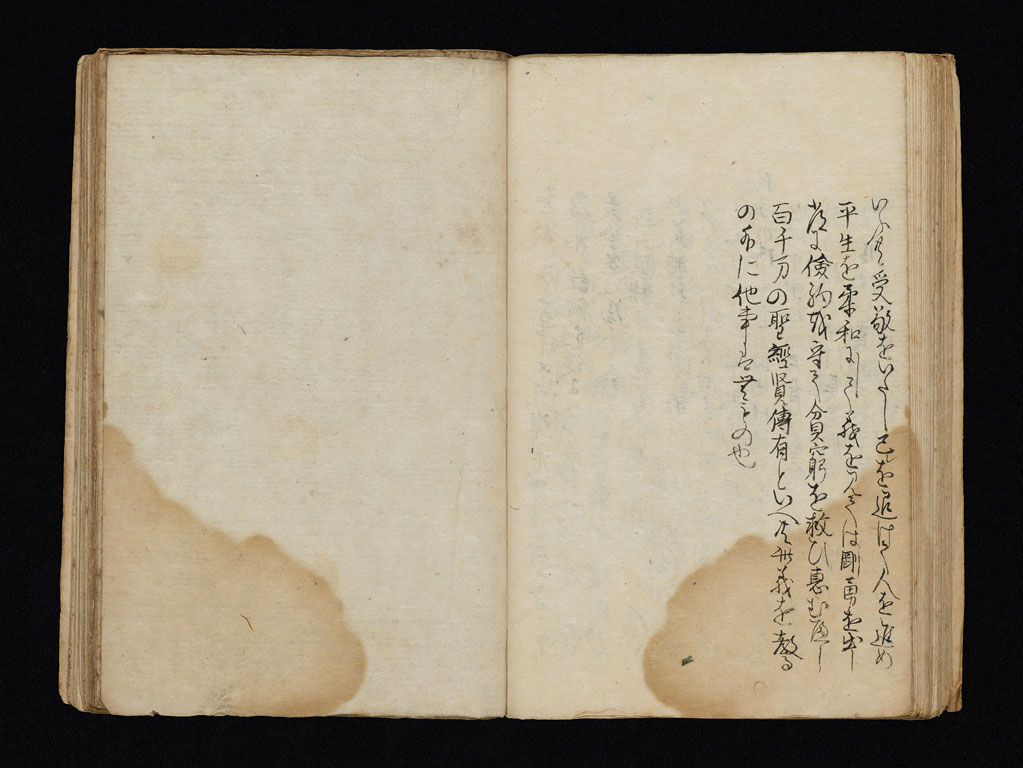 いへ共受敬をいたし己を退け人を進め
平生を柔和にして義を見ては剛勇を出し
常に倹約を守りて貧窮を救ひ恵むへし
百千万の聖經賢傳有といへ共此義を教る
の外に他事は無もの也